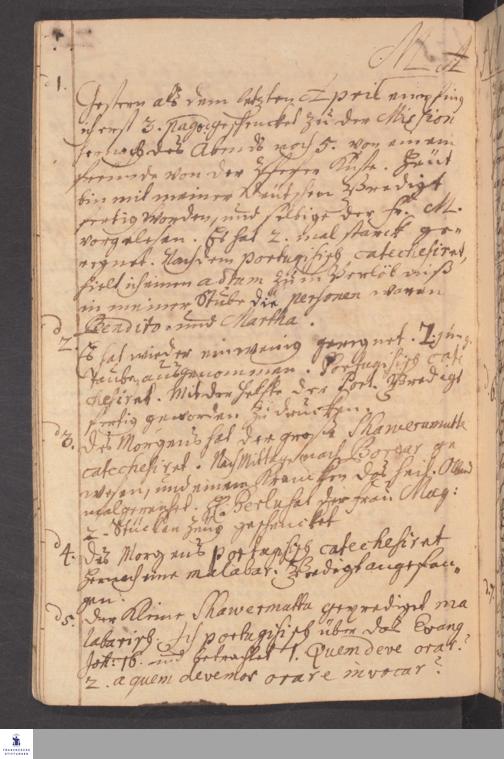 1.
Gestern als dem letzten April empfing
ich erst 3. pagod geschencket zu der Mission
hernach des Abends noch 5. von einem
freunde von der Küste. Heut
bin mit meiner Deutschen Predigt
fertig worden, und selbige der Fr. M.
vorgelesen. Es hat 2. mal starck ge-
regnet. Nach dem portugisisch catechesiret,
hielt ich einen actum zum Verlöbniß
in meiner Stube die personen waren
Bendito und Martha.
d 2.
Es hat wieder ein wenig geregnet.
ausgenommen. Portugisisch cate
chesiret. Mit der helfte der Port. Predigt
fertig geworden zu drucken.
d 3.
Des Morgens hat der große Shawerimutta
catechesiret. Nach Mittag nach Borgar ge
wesen, und einem Krancken das heil. Abend
mal gereichet. H. Berlu hat der Frau Mag:
2. Stücken Zeug geschencket
d 4.
Des Morgens portugisisch catechesiret
hernach eine malabar. Predigt angefan-
gen.
d 5.
Der kleine Shawerimutta geprediget ma
labarisch. Ich portugisisch über das Evang
Joh: 16. und betrachtet 1. Quem deve orar?
2. a quem devemos orar e invocar?
FRANCKESCHE
STIFTUNGEN